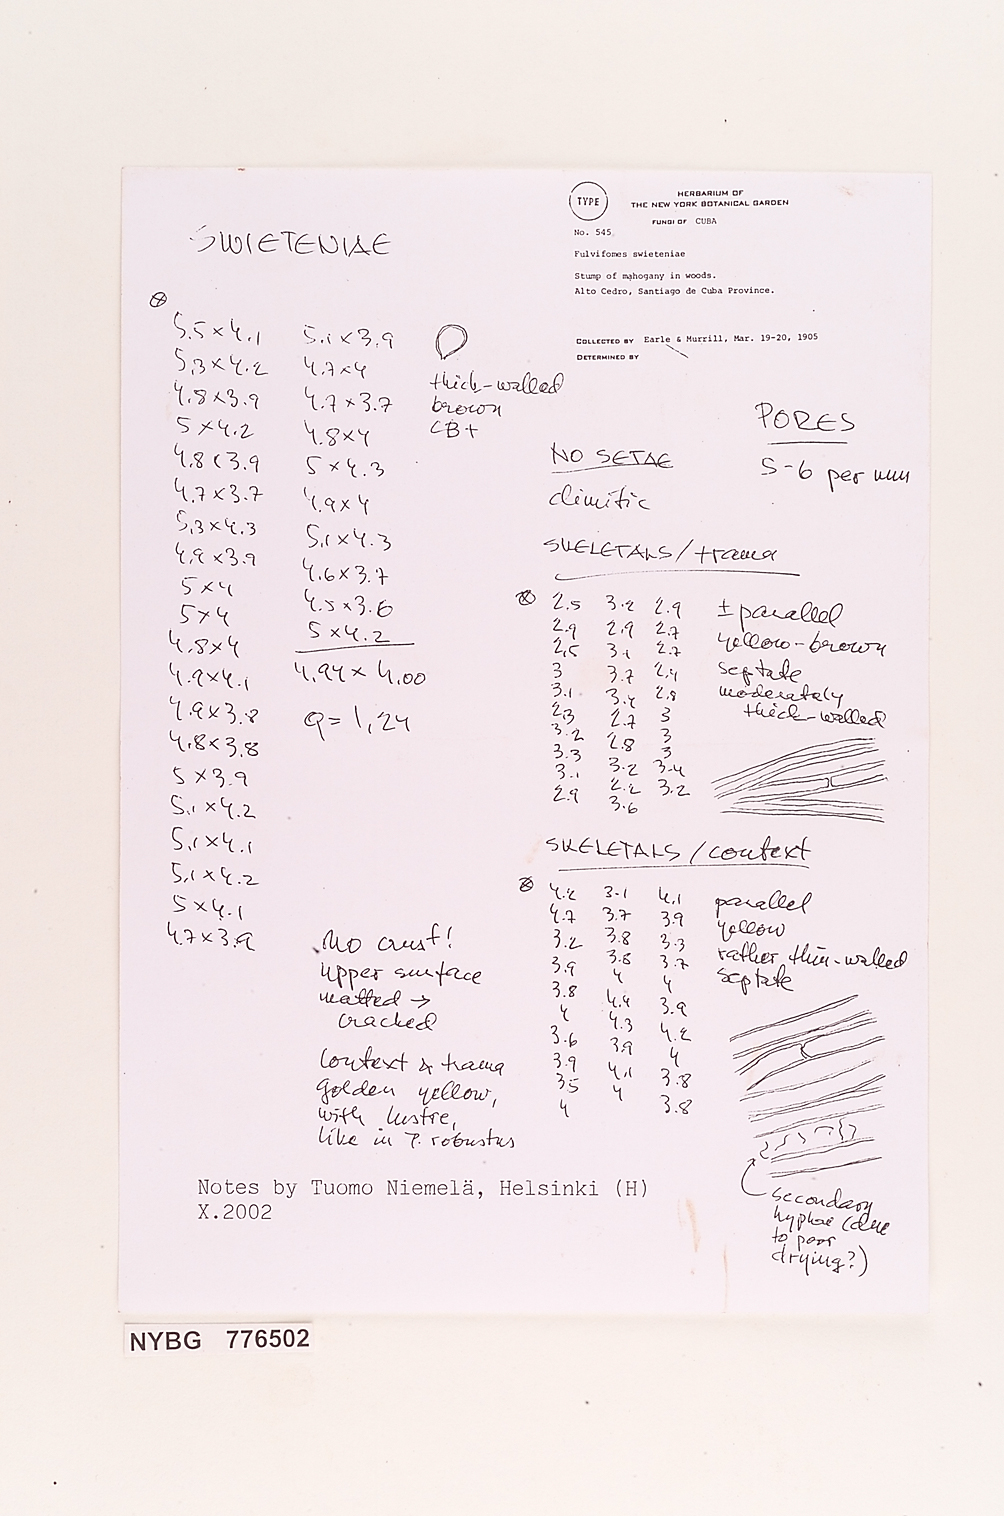 TYPE
HERBARIUM OF
THE NEW YORK BOTANICAL GARDEN
FUNGI OF CUBA
No. 545
Fulvifomes swieteniae
Stump of mahogany in woods.
Alto Cedro, Santiago de Cuba Province.
COLLECTED BY Earle & Murrill, Mar. 19-20, 1905
DETERMINED BY
SWIETENIAE
5.5 × 4.1
5.3 × 4.2
4.8 × 3.9
5 × 4.2
4.8 × 3.9
4.7 × 3.7
5.3 × 4.3
4.9 × 3.9
5 × 4
5 × 4
4.8 × 4
4.9 × 4.1
4.9 × 3.8
4.8 × 3.8
5 × 3.9
5.1 × 4.2
5.1 × 4.1
5.1 × 4.2
5 × 4.1
4.7 × 3.9
5.1 × 3.9
4.7 × 4
4.7 × 3.7
4.8 × 4
5 × 4.3
4.9 × 4
5.1 × 4.3
4.6 × 3.7
4.5 × 3.6
5 × 4.2
4.94 × 4.00
Q = 1,24
thick-walled
brown
CB+
PORES
5-6 per mm
NO SETAE
dimitic
SKELETALS / trama
2.5 3.2 2.9
2.9 2.9 2.7
2.5 3.1 2.7
3 3.7 2.4
3.1 3.4 2.8
2.3 2.7 3
3.2 2.8 3
3.3 3.2 3
3.1 2.2 3.4
2.9 3.6 3.2
± parallel
yellow-brown
septate
moderately
thick-walled
SKELETALS / context
4.2 3.1 4.1
4.7 3.7 3.9
3.2 3.8 3.3
3.9 3.8 3.7
3.8 4 4
4 4.4 3.9
3.6 4.3 4.2
3.9 3.9 4
3.5 4.1 3.8
4 4 3.8
parallel
yellow
rather thin-walled
septate
secondary
hyphae (due
to poor
drying?)
No crust!
upper surface
matted →
cracked
Context & trama
golden yellow,
with lustre,
like in P. robustus
Notes by Tuomo Niemelä, Helsinki (H)
X.2002
NYBG 776502